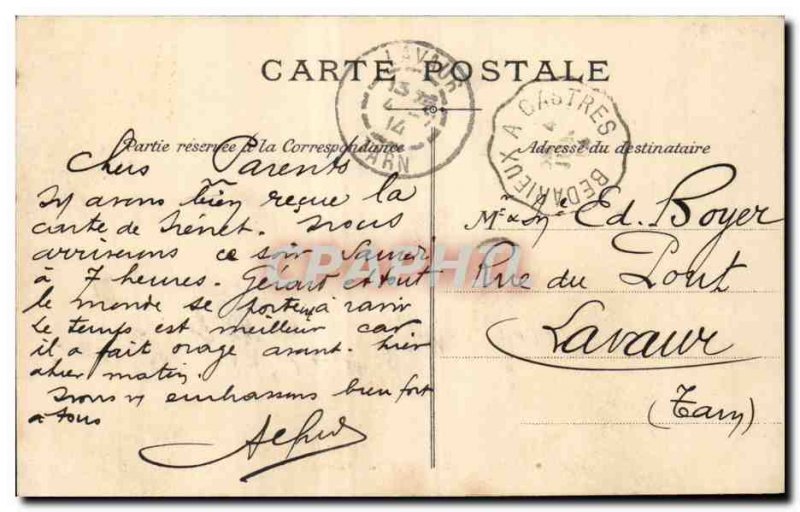 CARTE POSTALE
LAVAUR
13
14
TARN
BEDARIEUX A CASTRES
Partie réservée à la Correspondance
Adresse du destinataire
Chers Parents
avons bien reçue la
carte de Nénet. Nous
arriverons ce soir Samedi
à 7 heures. Gérard et tout
le monde se porte à ravir
Le temps est meilleur car
il a fait orage avant. hier
et hier matin
Nous embrassons bien fort
à tous
Alfred
Mr & Me Ed. Boyer
Rue du Pont
Lavaur
(Tarn)
CPAPHIL